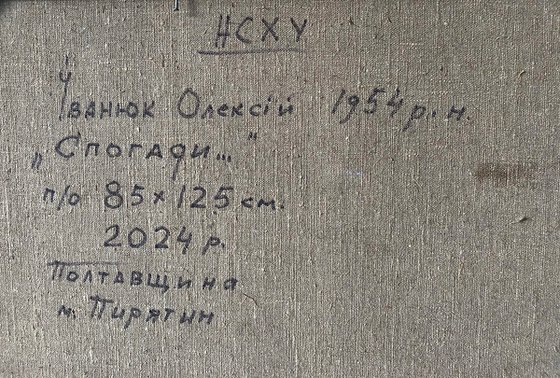 НСХУ
Іванюк Олексій 1954 р.н.
„Спогади..."
п/о 85 × 125 см.
2024 р.
Полтавщина
м. Пирятин